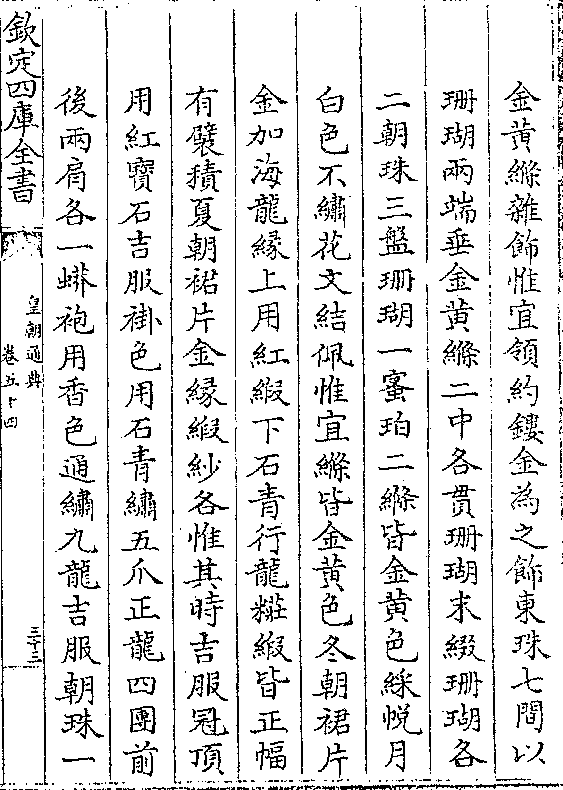 金黄縧雜飾惟宜領約鏤金為之飾東珠七間以
珊瑚兩端垂金黄縧二中各貫珊瑚末綴珊瑚各
二朝珠三盤珊瑚一蜜珀二縧皆金黄色綵帨月
白色不繡花文結佩惟宜縧皆金黄色冬朝裙片
金加海龍緣上用紅緞下石青行龍糚緞皆正幅
有襞積夏朝裙片金緣緞紗各惟其時吉服冠頂
用紅寶石吉服褂色用石青繡五爪正龍四團前
後兩肩各一蟒袍用香色通繡九龍吉服朝珠一
欽定四庫全書
皇朝通典
卷五十四
三十三